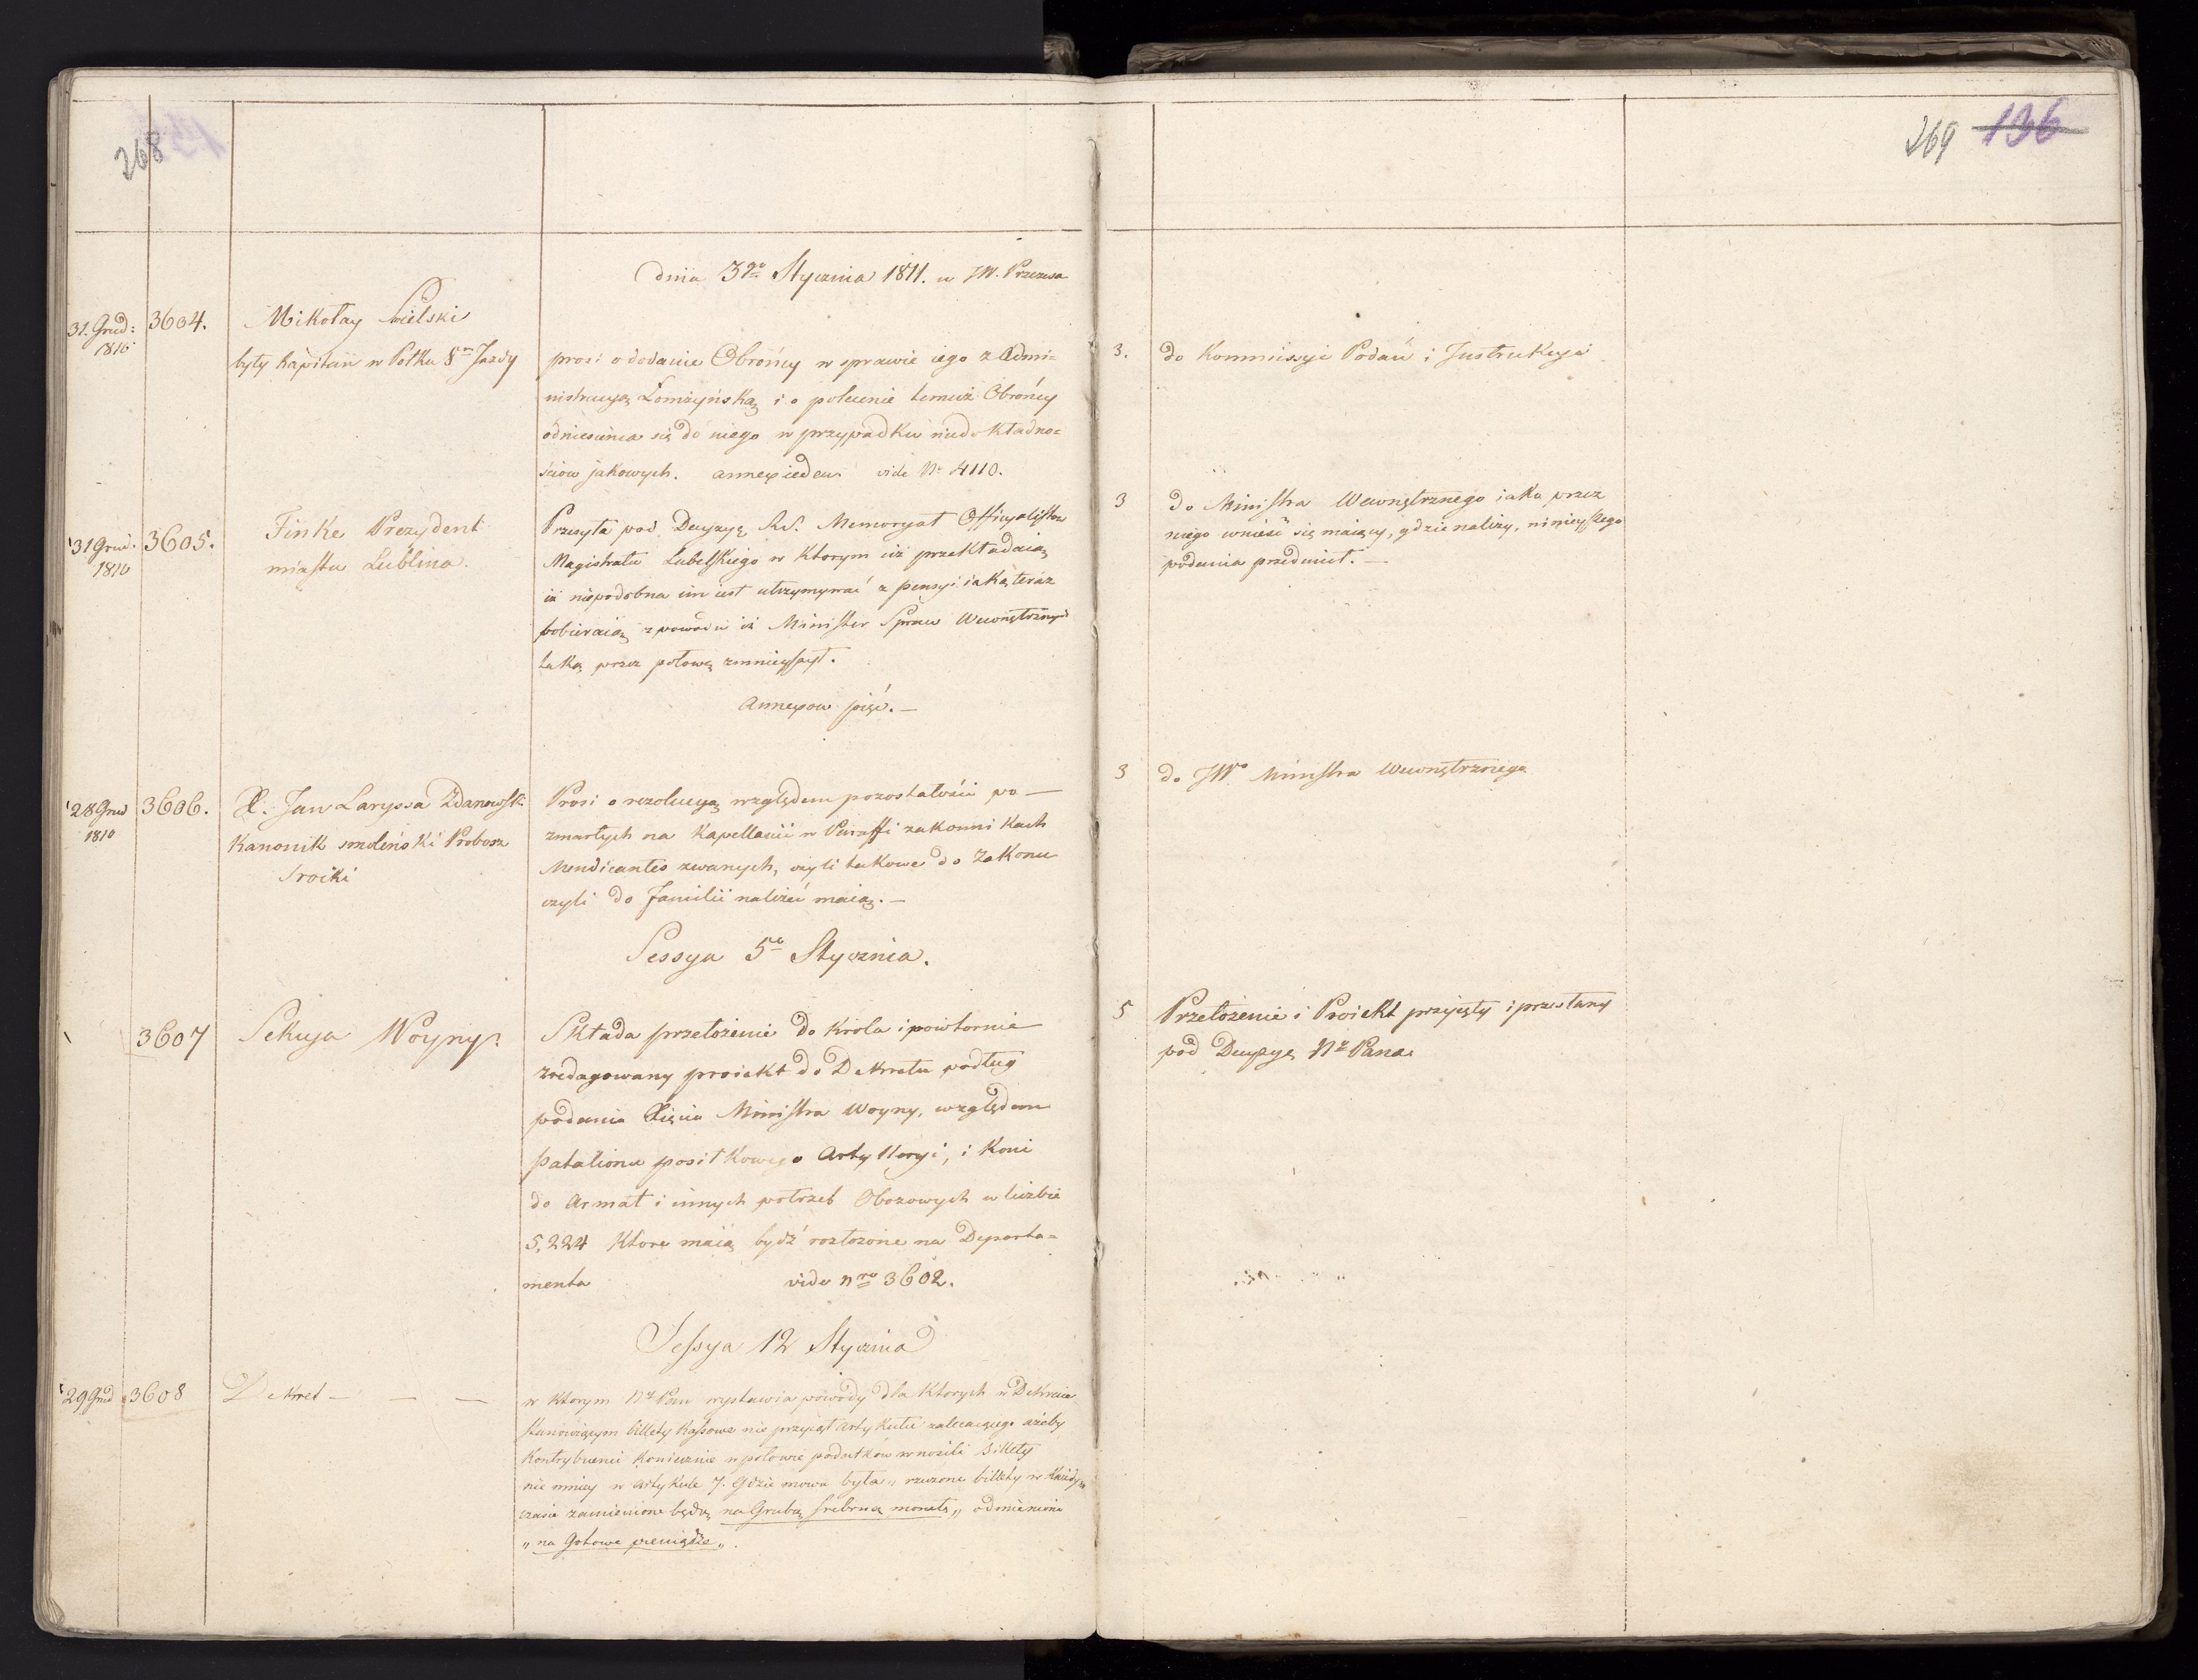 268
269 136
dnia 3go Stycznia 1811. u JW. Prezesa
31. Grud: 1810.
3604.
Mikołay Sielski
były Kapitan w Połku 8m Jazdy
prosi o dodanie Obrońcy w sprawie iego z Admi=
nistracyą Łomżyńską i o polecenie temuż Obrońcy
odniesienia się do niego w przypadku niedokładno=
ściow jakowych. annex ieden vide No 4110.
3. do Kommissyi Podań i Instrukcyi
31 Grud. 1810
3605.
Finke Prezydent
miasta Lublina.
Przesyła pod Decyzyę R.S. Memoryał Officyalistow
Magistratu Lubelskiego w ktorym iż przekładaią
iż niepodobna im iest utrzymywać z pensyi iaką teraz
pobieraią z powodu iż Minister Spraw Wewnętrznych
taką przez połowę zmnieyszył.
Annexow pięć. —
3 do Ministra Wewnętrznego iako przez
niego wnieść się maiący, gdzie należy, ninieyszego
podania przedmiot. —
28 Grud 1810
3606.
X. Jan Laryssa Zdanowski
Kanonik smoleński Proboszcz
Troicki
Prosi o rezolucyą względem pozostałości po —
zmarłych na Kapellanii w Paraffi zakonnikach
Mendicantes zwanych, czyli takowe do Zakonu
czyli do Familii należeć maią. —
3 do JWo Ministra Wewnętrznego
Sessya 5o Stycznia.
3607
Sekcya Woyny.
Składa przełożenie do Krola i powtornie
zredagowany proiekt do Dekretu podług
podania Xięcia Ministra Woyny, względem
batalionu posiłkowego Artylleryi, i Koni
do Armat i innych potrzeb Obozowych w liczbie
5,224 Ktore maią bydź rozłożone na Departa=
menta vide nro 3602.
5 Przełożenie i Proiekt przyięty i przesłany
pod Decyzyę Nо Pana
Sessya 12 Stycznia
29 Grud
3608
Dekret — — —
w ktorym Ny Pan wystawia powody dla ktorych w Dekrecie
stanowiącym billety kassowe nie przyiął artykułu zalecaiącego ażeby
Kontrybuenci koniecznie w połowie podatkow wnosili Billety
nie mniey w artykule 7. gdzie mowa była „ rzeczone billety w każdym
czasie zamienione będą na Grubą srebrną monetę „ odmieniono
„ na gotowe pieniądze „.